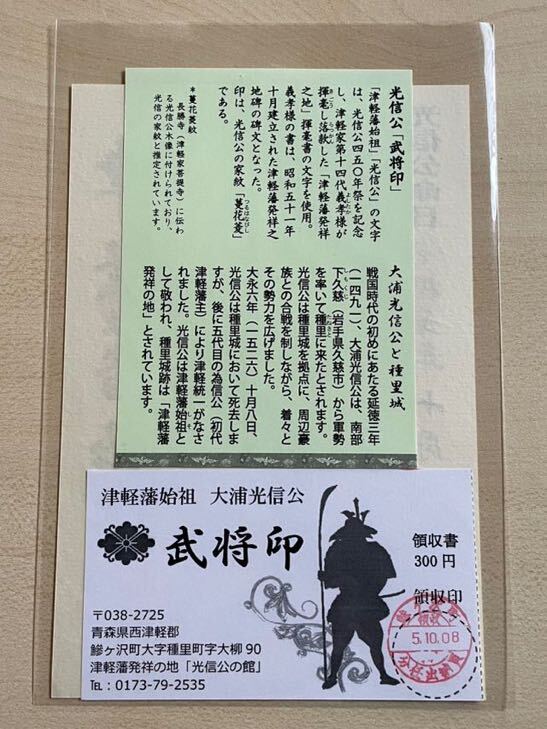 光信公「武将印」
「津軽藩始祖」「光信公」の文字
は、光信公四五〇年祭を記念
し、津軽家第十四代義孝様が
揮毫し落款した「津軽藩発祥
之地」揮毫書の文字を使用。
義孝様の書は、昭和五十一年
十月建立された津軽藩発祥之
地碑の碑文となった。
印は、光信公の家紋「蔓花菱」
である。
*蔓花菱紋
長勝寺(津軽家菩提寺)に伝わ
る光信公木像に付けられており、
光信の家紋と推定されています。
大浦光信公と種里城
戦国時代の初めにあたる延徳三年
(一四九一)、大浦光信公は、南部
下久慈(岩手県久慈市)から軍勢
を率いて種里に来たとされます。
光信公は種里城を拠点に、周辺豪
族との合戦を制しながら、着々と
その勢力を広げました。
大永六年(一五二六)十月八日、
光信公は種里城において死去しま
すが、後に五代目の為信公(初代
津軽藩主)により津軽統一がなさ
れました。光信公は津軽藩始祖と
して敬われ、種里城跡は「津軽藩
発祥の地」とされています。
津軽藩始祖 大浦光信公
武将印
領収書
300円
領収印
5.10.08
〒038-2725
青森県西津軽郡
鰺ヶ沢町大字種里町字大柳90
津軽藩発祥の地「光信公の館」
℡:0173-79-2535